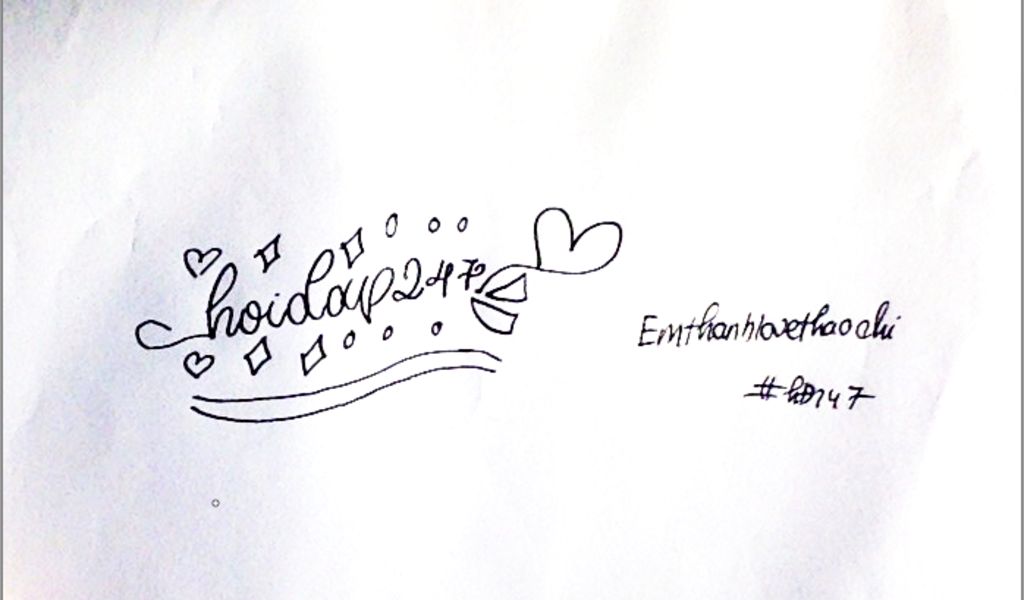 hoidap247
Emthanhlovethaochi
#hD247